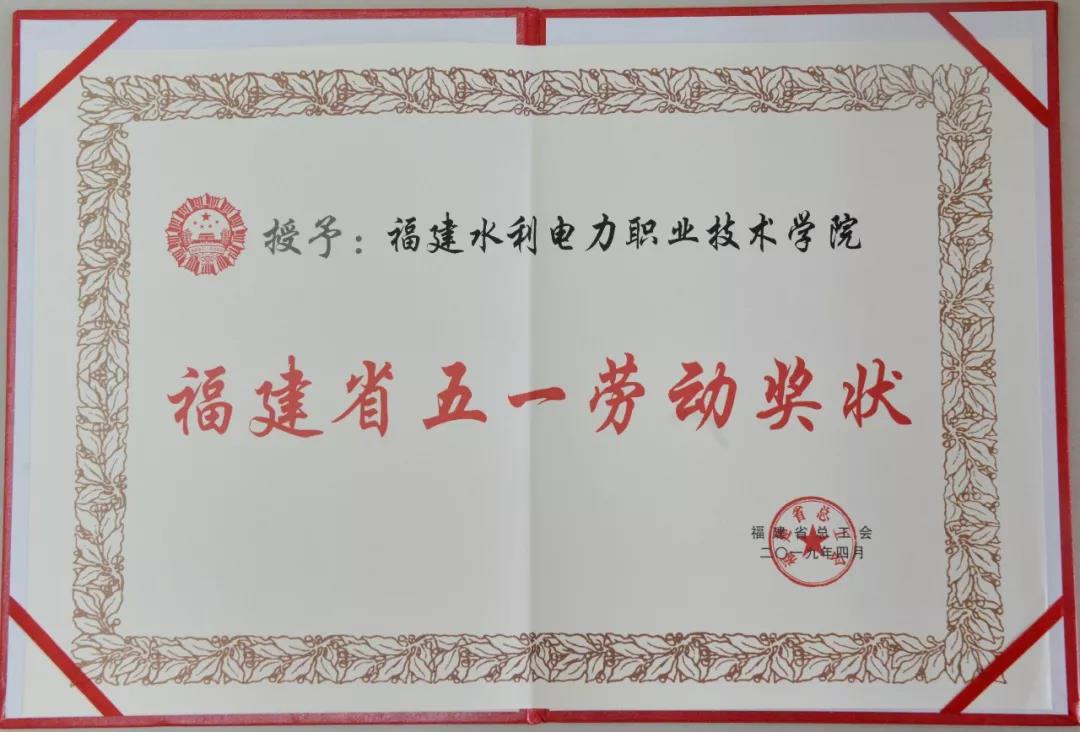 授予：福建水利电力职业技术学院
福建省五一劳动奖状
福建省总工会
二〇一九年四月
福建省总工会